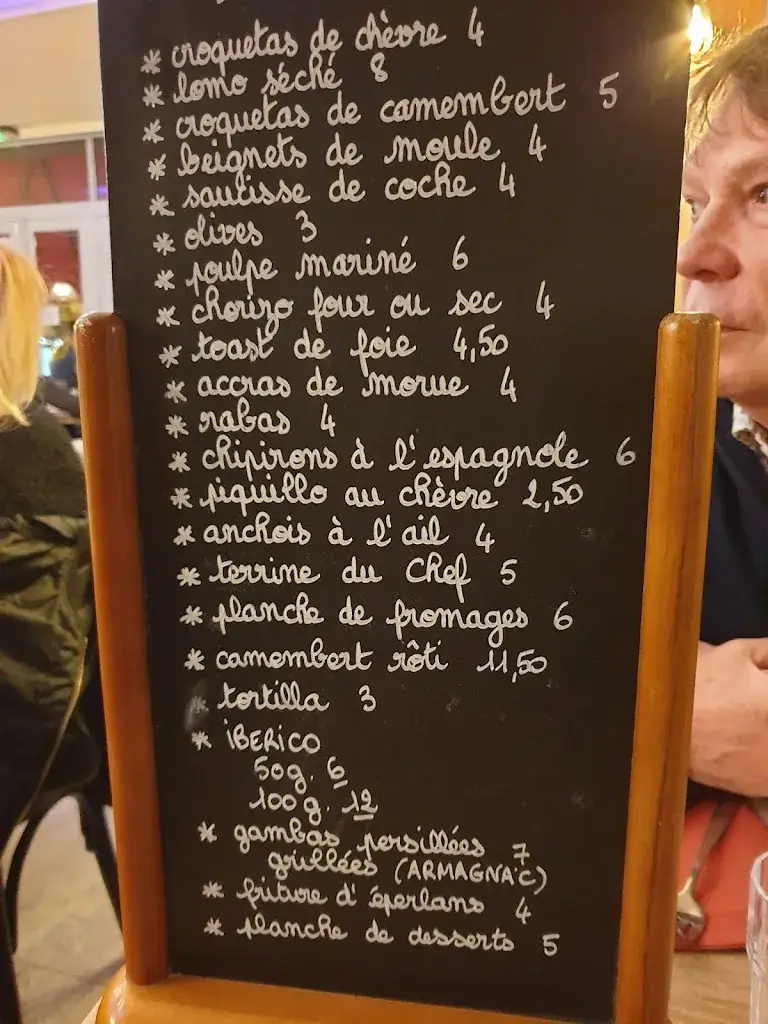 * croquetas de chèvre 4
* lomo séché 8
* croquetas de camembert 5
* beignets de moule 4
* saucisse de coche 4
* olives 3
* poulpe mariné 6
* chorizo four ou sec 4
* toast de foie 4,50
* accras de morue 4
* rabas 4
* chipirons à l'espagnole 6
* piquillo au chèvre 2,50
* anchois à l'ail 4
* terrine du Chef 5
* planche de fromages 6
* camembert rôti 11,50
* tortilla 3
* iBERiCO
50g. 6
100g. 12
* gambas persillées 7
grillées (ARMAGNAC)
* friture d'éperlans 4
* planche de desserts 5